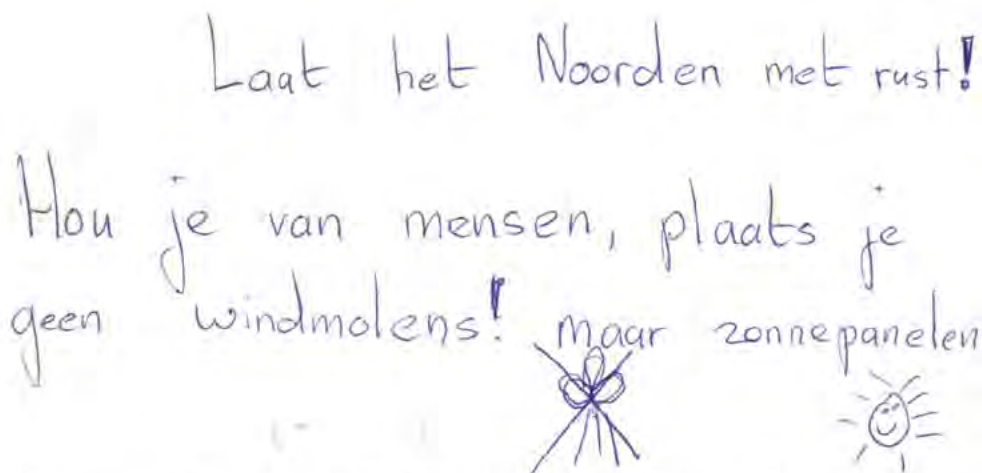 Laat het Noorden met rust!
Hou je van mensen, plaats je
geen windmolens! maar zonnepanelen